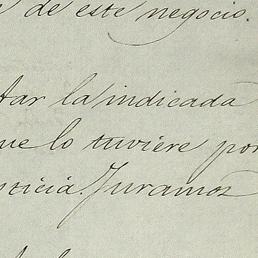 de este negocio.
tar la indicada
ue lo tuviere por
sticia. Juramos